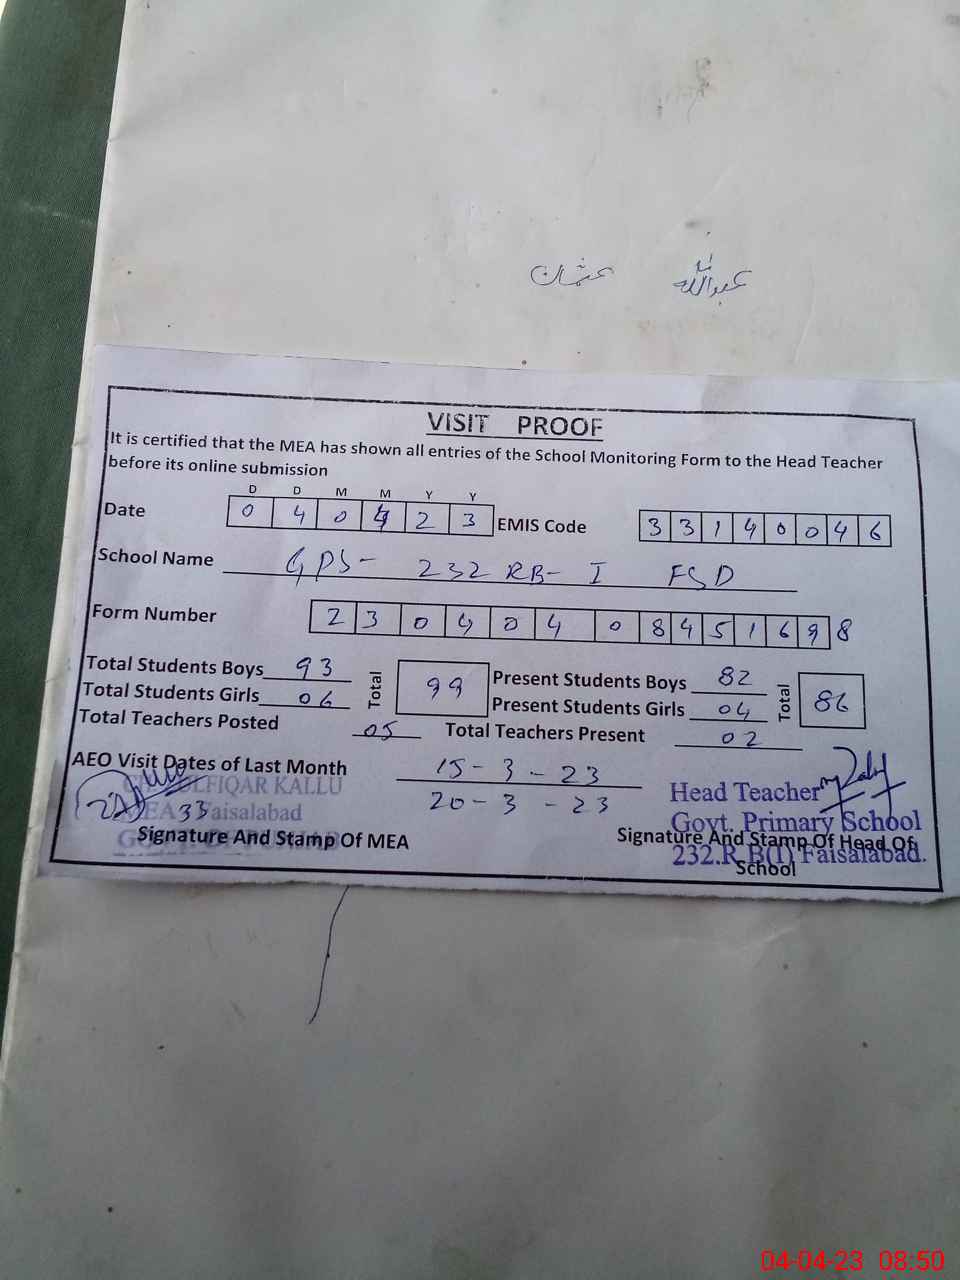 عبداللہ عثمان
VISIT PROOF
It is certified that the MEA has shown all entries of the School Monitoring Form to the Head Teacher
before its online submission
D D M M Y Y
Date 0 4 0 4 2 3 EMIS Code 3 3 1 4 0 0 4 6
School Name GPS- 232 RB- I FSD
Form Number 2 3 0 4 0 4 0 8 4 5 1 6 9 8
Total Students Boys 93 Total 99 Present Students Boys 82 Total 86
Total Students Girls 06 Present Students Girls 04
Total Teachers Posted 05 Total Teachers Present 02
AEO Visit Dates of Last Month 15-3-23
20-3-23
FIQAR KALLU
MEA 33 Faisalabad
Signature And Stamp Of MEA
Head Teacher
Govt. Primary School
232.R.B(I) Faisalabad.
Signature And Stamp Of Head Of
School
04-04-23 08:50